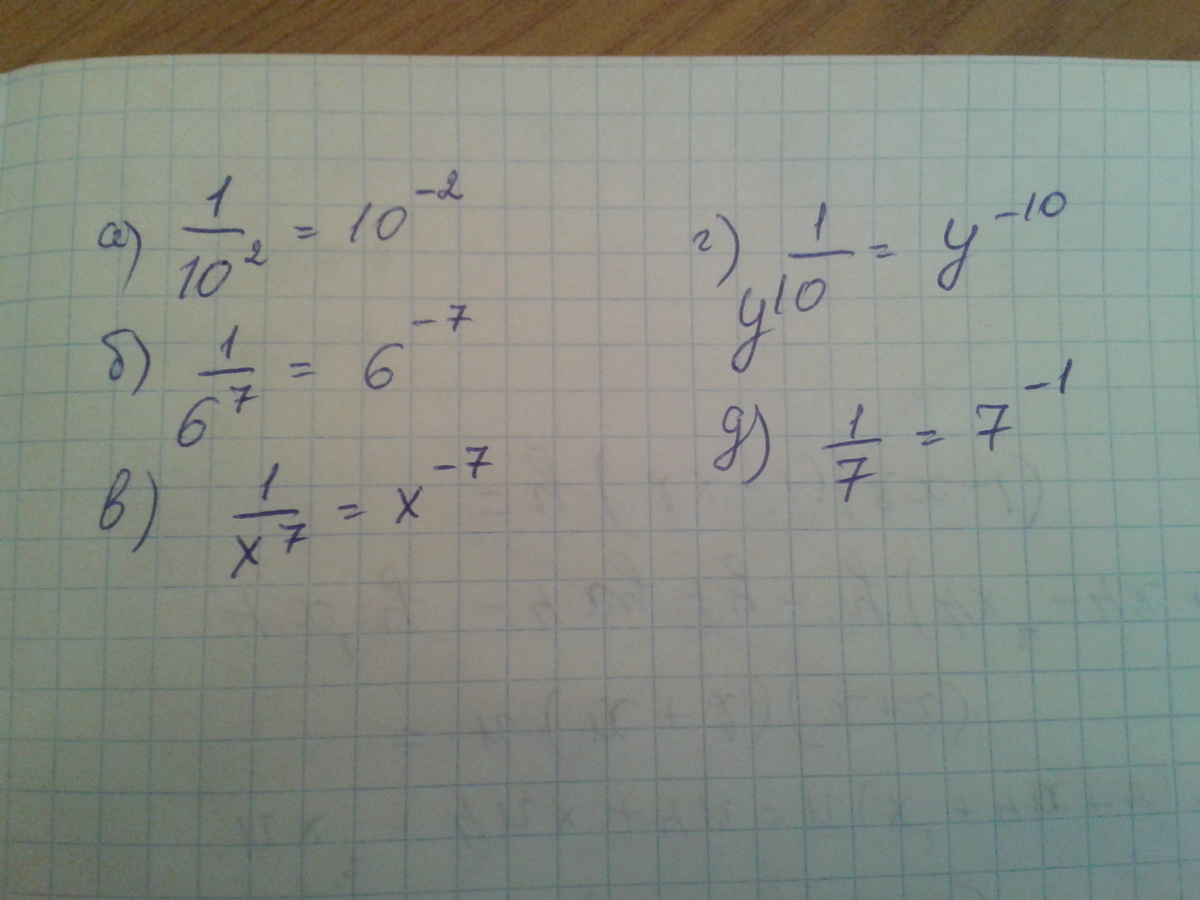 а) 1/10² = 10⁻²
б) 1/6⁷ = 6⁻⁷
в) 1/x⁷ = x⁻⁷
г) 1/y¹⁰ = y⁻¹⁰
д) 1/7 = 7⁻¹